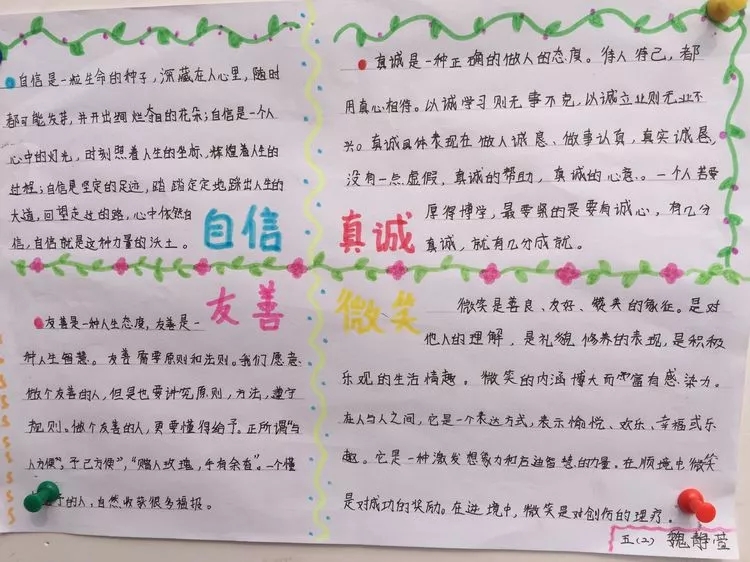 自信是一粒生命的种子，深藏在人心里，随时
都可能发芽，并开出绚烂夺目的花朵；自信是一个人
心中的灯光，时刻照着人生的坐标，辉煌着人生的
过程；自信是坚定的足迹，踏踏定定地踏出人生的
大道，回望走过的路，心中依然自
信，自信就是这种力量的沃土。
自信
真诚是一种正确的做人的态度。待人待己，都
用真心相待。以诚学习则无事不克，以诚立业则无业不
兴。真诚具体表现在做人诚恳、做事认真，真实诚恳，
没有一点虚假，真诚的帮助，真诚的心意。一个人若要
厚得博学，最要紧的是要有诚心，有几分
真诚，就有几分成就。
真诚
友善
友善是一种人生态度，友善是一
种人生智慧。友善需要原则和法则。我们愿意
做个友善的人，但是也要讲究原则，方法，遵守
规则。做个友善的人，更要懂得给予。正所谓"与
人方便"，予己方便"，"赠人玫瑰，手有余香"。一个懂
的人，自然收获很多福报。
微笑
微笑是善良、友好、赞美的象征。是对
他人的理解，是礼貌修养的表现，是积极
乐观的生活情趣。微笑的内涵博大而富有感染力。
在人与人之间，它是一个表达方式，表示愉悦、欢乐、幸福或乐
趣。它是一种激发想象力和启迪智慧的力量。在顺境中微笑
是对成功的奖励。在逆境中，微笑是对创伤的理疗。
五(2) 魏静萱